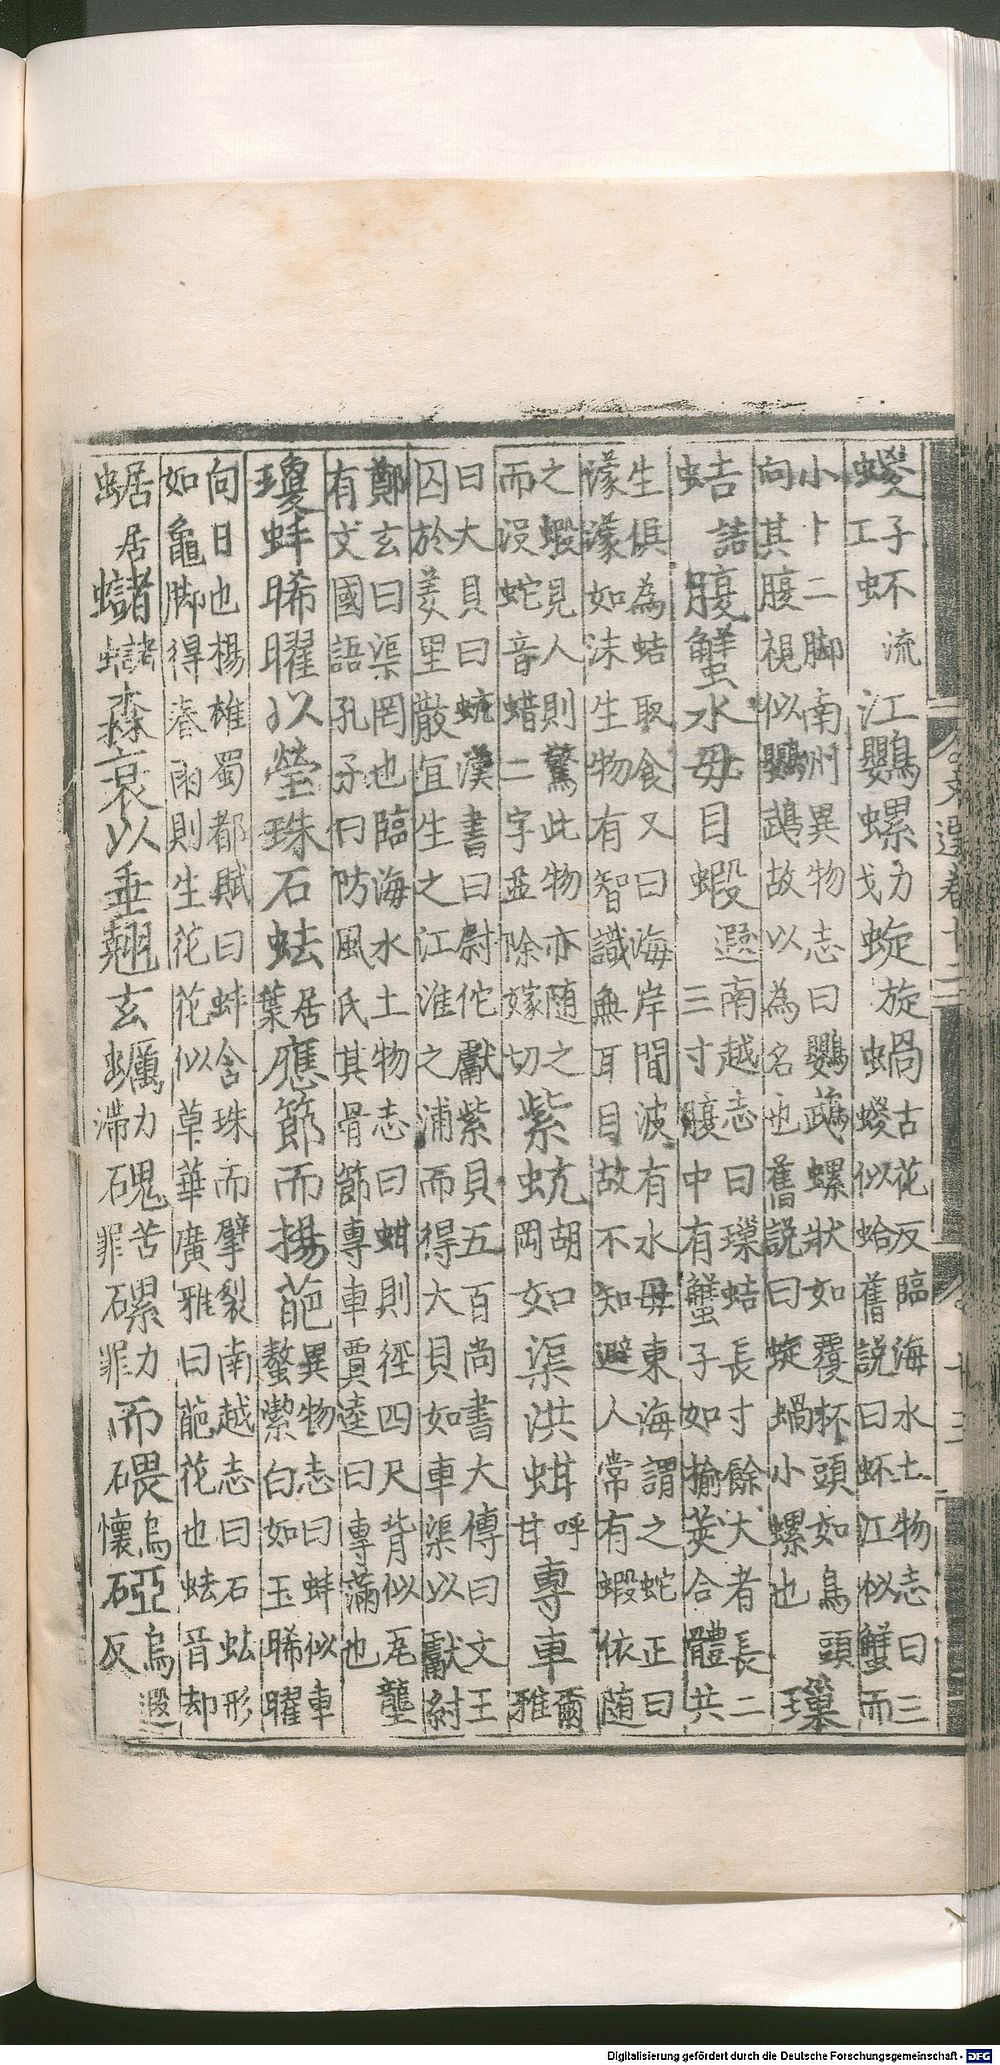 蝬子工虷流江鸚螺力戈蜁旋蝸古花反蝬似蛤臨海水土物志曰三舊說曰虷江似蟹而
小十二脚南州異物志曰鸚鵡螺狀如覆杯頭如鳥頭向其腹視似鸚鵡故以為名也舊說曰蜁蝸小螺也璅
蛣詰腹蟹水母目蝦遐南越志曰璅蛣長寸餘大者長二三寸腹中有蟹子如揄莢合體共
生俱為蛣取食又曰海岸間波有水母東海謂之蛇正曰濛濛如沫生物有智識無耳目故不知避人常有蝦依随
之蝦見人則驚此物亦随之而沒蛇音蜡二字並除嫁切紫蚢胡岡如渠洪蚶呼甘專車爾雅
曰大貝曰蚢漢書曰尉佗獻紫貝五百尚書大傳曰文王囚於羑里散宜生之江淮之浦而得大貝如車渠以獻紂
鄭玄曰渠罔也臨海水土物志曰蚶則徑四尺背似瓦壟有文國語孔子曰防風氏其骨節專車賈逵曰專滿也
瓊蚌晞曜以瑩珠石蚨居葉應節而揚葩異物志曰蚌似車螯潔白如玉晞曜
向日也楊雄蜀都賦曰蚌含珠而擘裂南越志曰石蚨形如龜脚得春雨則生花花似草華廣雅曰葩花也蚨音却
蜛居蠩諸森衰以垂翹玄蠣力滯磈苦罪磥力罪而碨烏懷砸烏遐反
文選卷十二
Digitalisierung gefördert durch die Deutsche Forschungsgemeinschaft - DFG